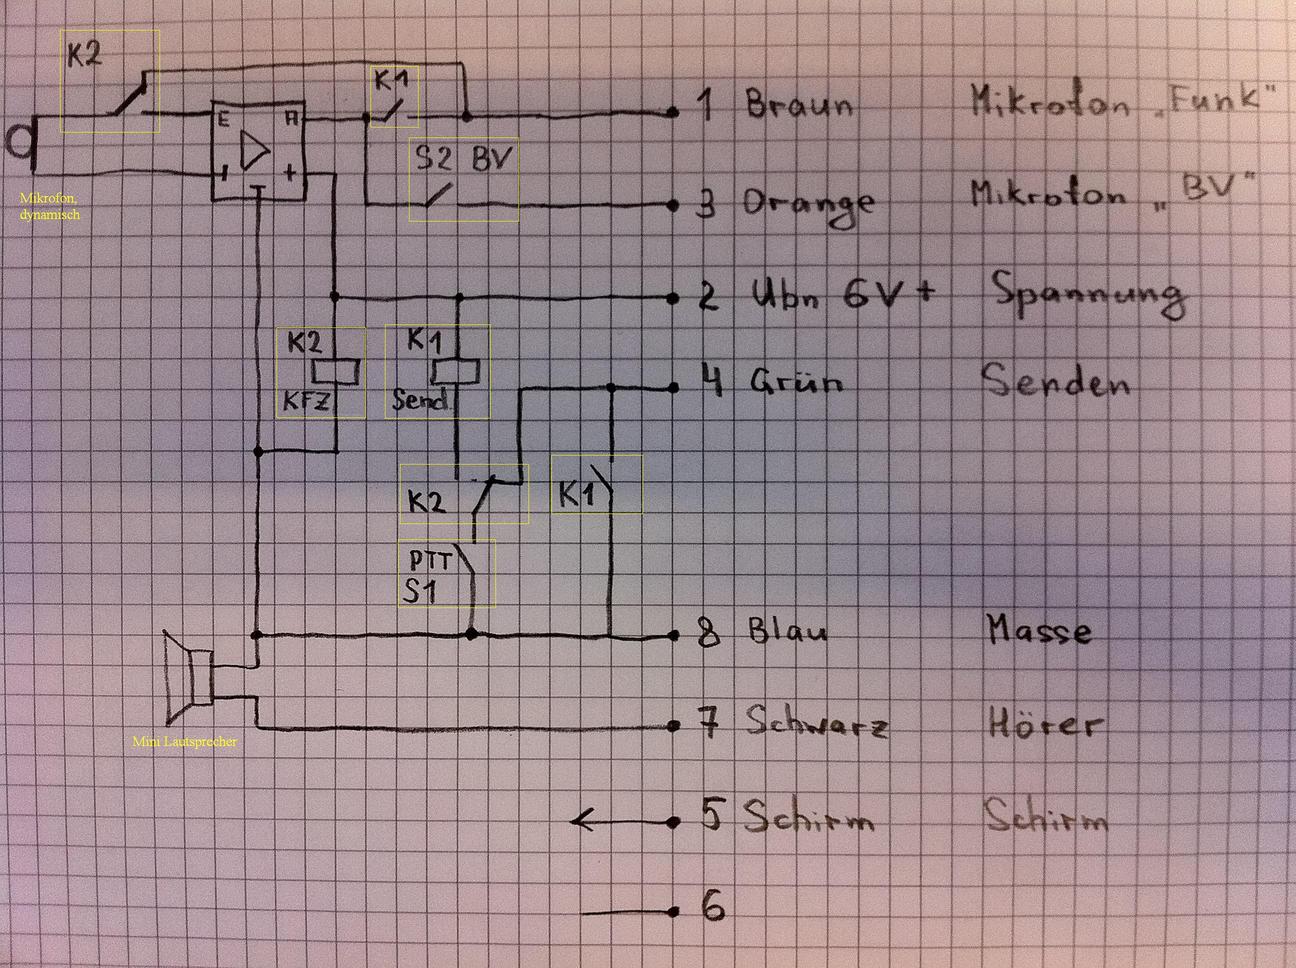 K2
K1
1 Braun Mikrofon „Funk"
E A
S2 BV
- +
3 Orange Mikrofon „BV"
Mikrofon,
dynamisch
2 Ubn 6V + Spannung
K2 K1
4 Grün Senden
KFZ Send.
K2 K1
PTT
S1
8 Blau Masse
7 Schwarz Hörer
Mini Lautsprecher
5 Schirm Schirm
6